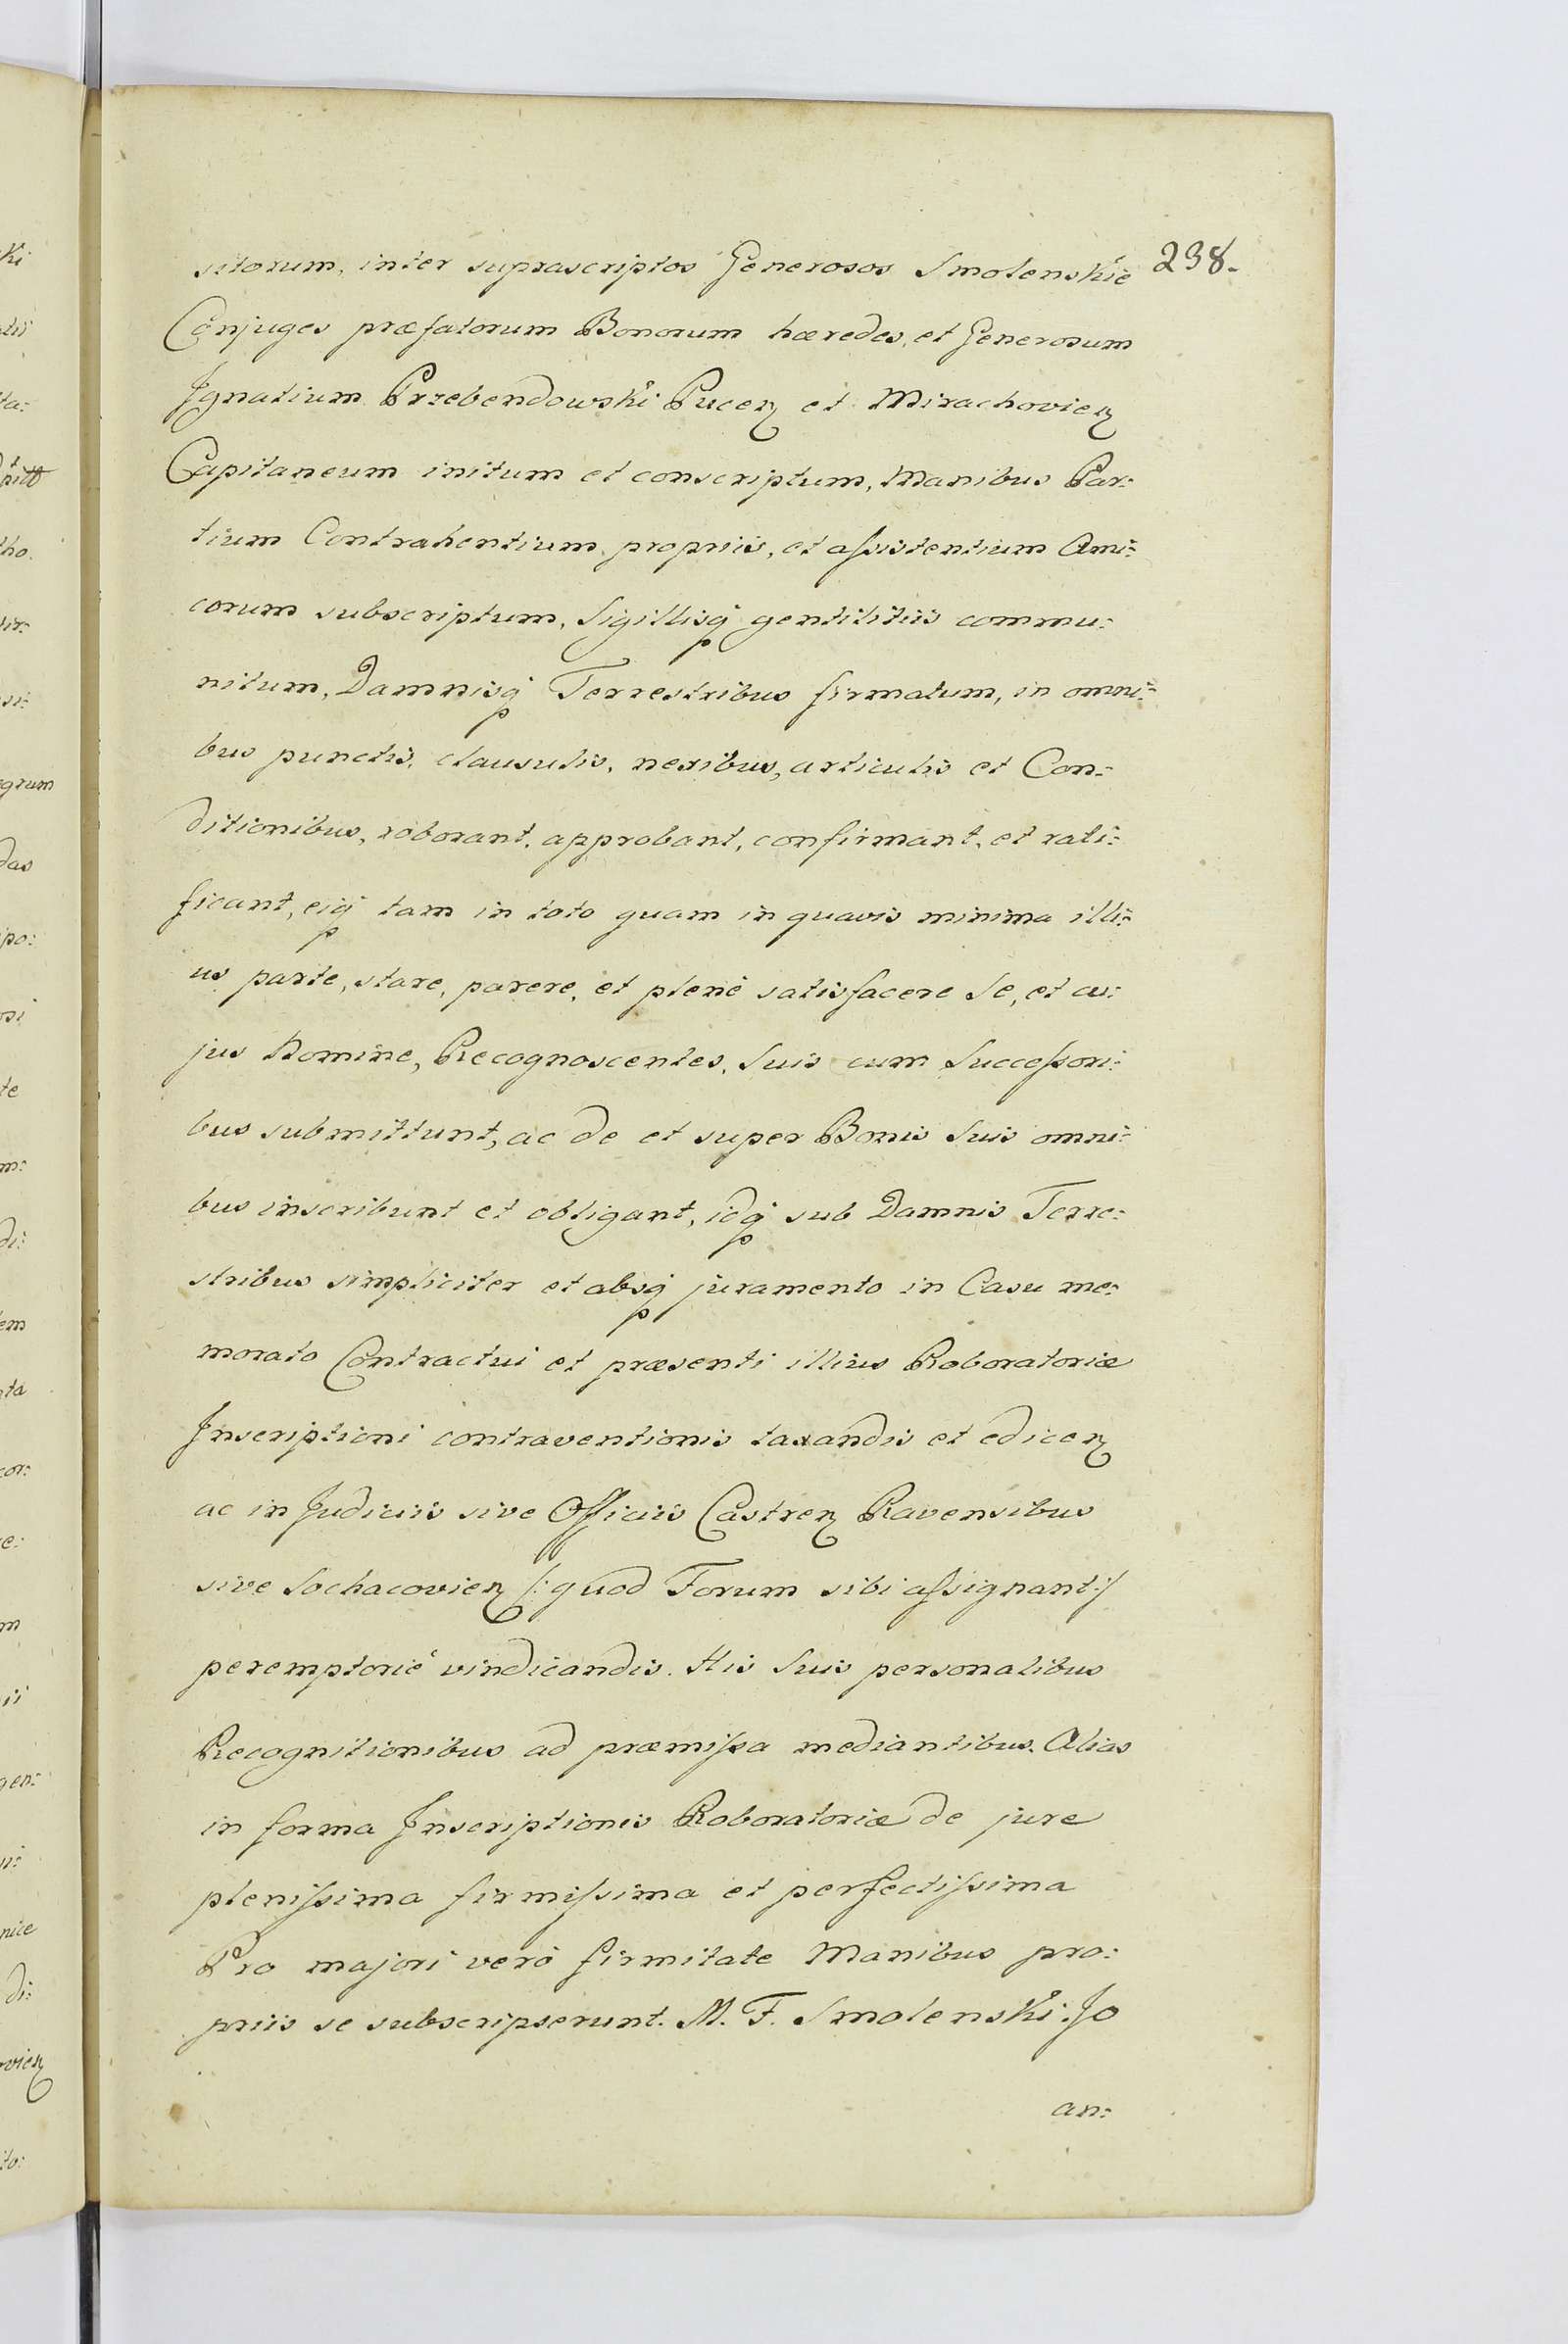 238.
sitorum, inter suprascriptos Generosos Smolenskie
Conjuges præfatorum Bonorum hæredes, et Generosum
Ignatium Przebendowski Pucen et Mirachovien
Capitaneum initum et conscriptum, Manibus Par:
tium Contrahentium propriis, et aſsistentium Ami:
corum subscriptum, Sigillisq gentilitiis commu:
nitum, Damnisq Terrestribus firmatum, in omni:
bus punctis, clausulis, nexibus, articulis et Con:
ditionibus, roborant, approbant, confirmant, et rati:
ficant, eiq tam in toto quam in quavis minima illi:
us parte, stare, parere, et plenè satisfacere Se, et cu:
jus Nomine, Recognoscentes, Suis cum Succeſsori:
bus submittunt, ac de et super Bonis Suis omni:
bus inscribunt et obligant, idq sub Damnis Terre:
stribus simpliciter et absq juramento in Casu me:
morato Contractui et præsenti illius Roboratoriæ
Inscriptioni contraventionis taxandis et edicen
ac in Judiciis sive Officiis Castren Ravensibus
sive Sochacovien /: quod Forum sibi aſsignant :/
peremptoriè vindicandis. His Suis personalibus
Recognitionibus ad præmiſsa mediantibus. Alias
in forma Inscriptionis Roboratoriæ de jure
pleniſsima firmiſsima et perfectiſsima
Pro majori verò firmitate Manibus pro:
priis se subscripserunt. M. F. Smolenski. Jo
an:
ki
tii
ta:
tho.
sir:
si:
grum
das
ipo:
osi
te
m:
di:
em
ta
cor:
e:
m
ii
gen:
ui:
nice
di:
ovien
ito: